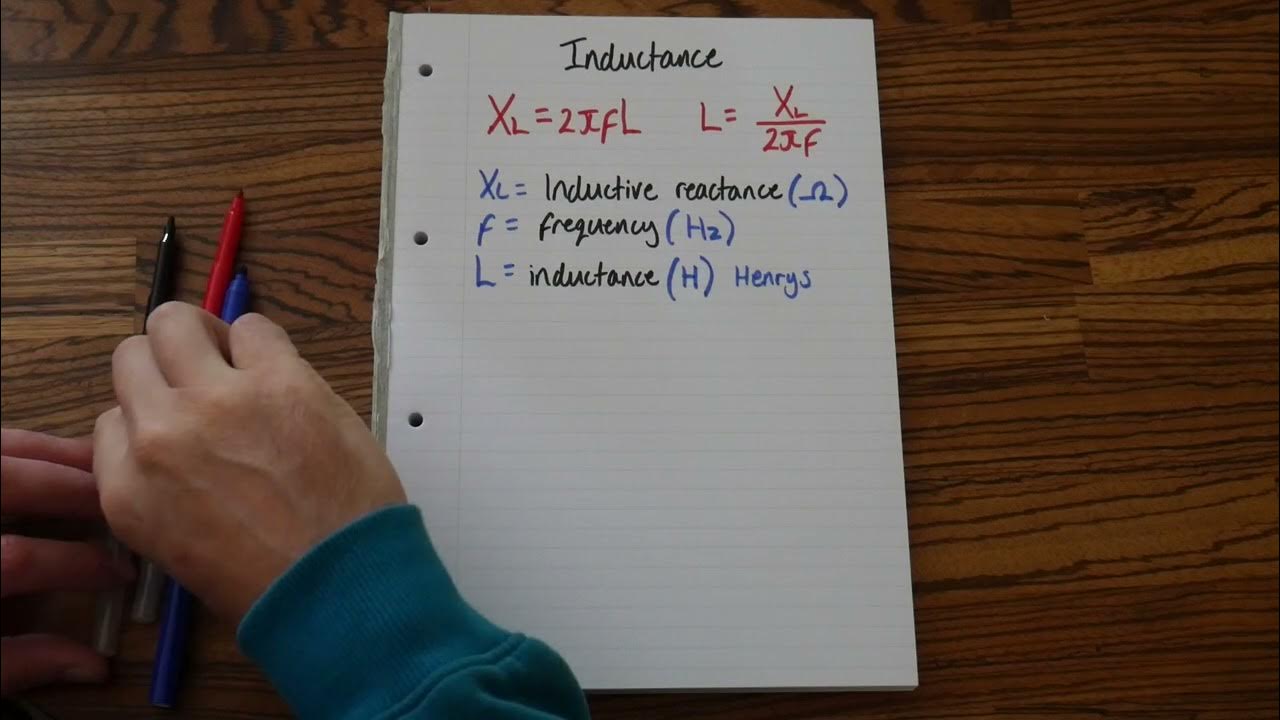 Inductance
XL = 2πfL L = XL / 2πf
XL = Inductive reactance (Ω)
f = frequency (Hz)
L = inductance (H) Henrys